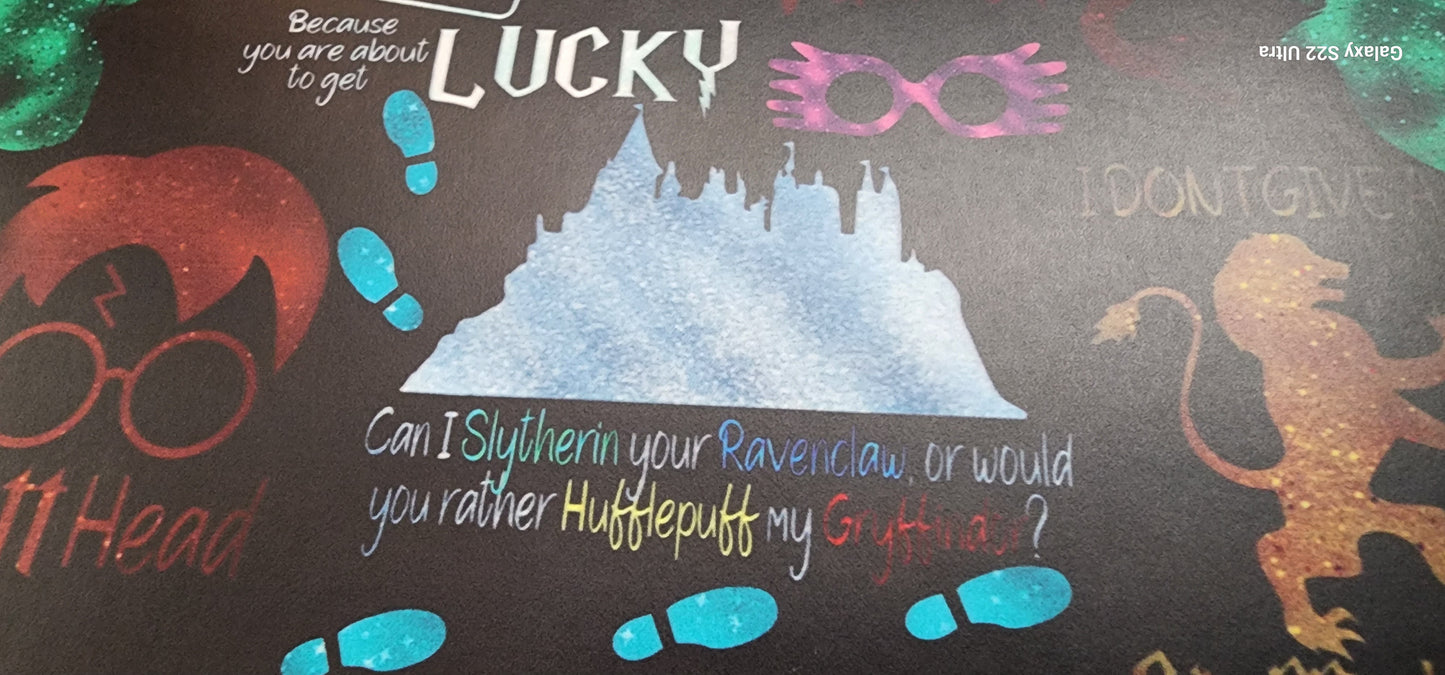 Because
you are about
to get
LUCKY
Galaxy S22 Ultra
I DONT GIVE A
Head
Can I Slytherin your Ravenclaw, or would
you rather Hufflepuff my Gryffindor?